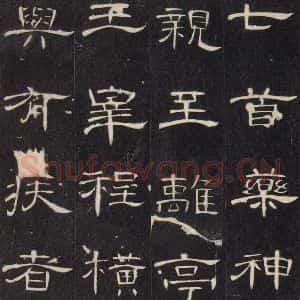 七首藥神
親至離亭
王宰程橫
與有疾者
Shufawang.CN